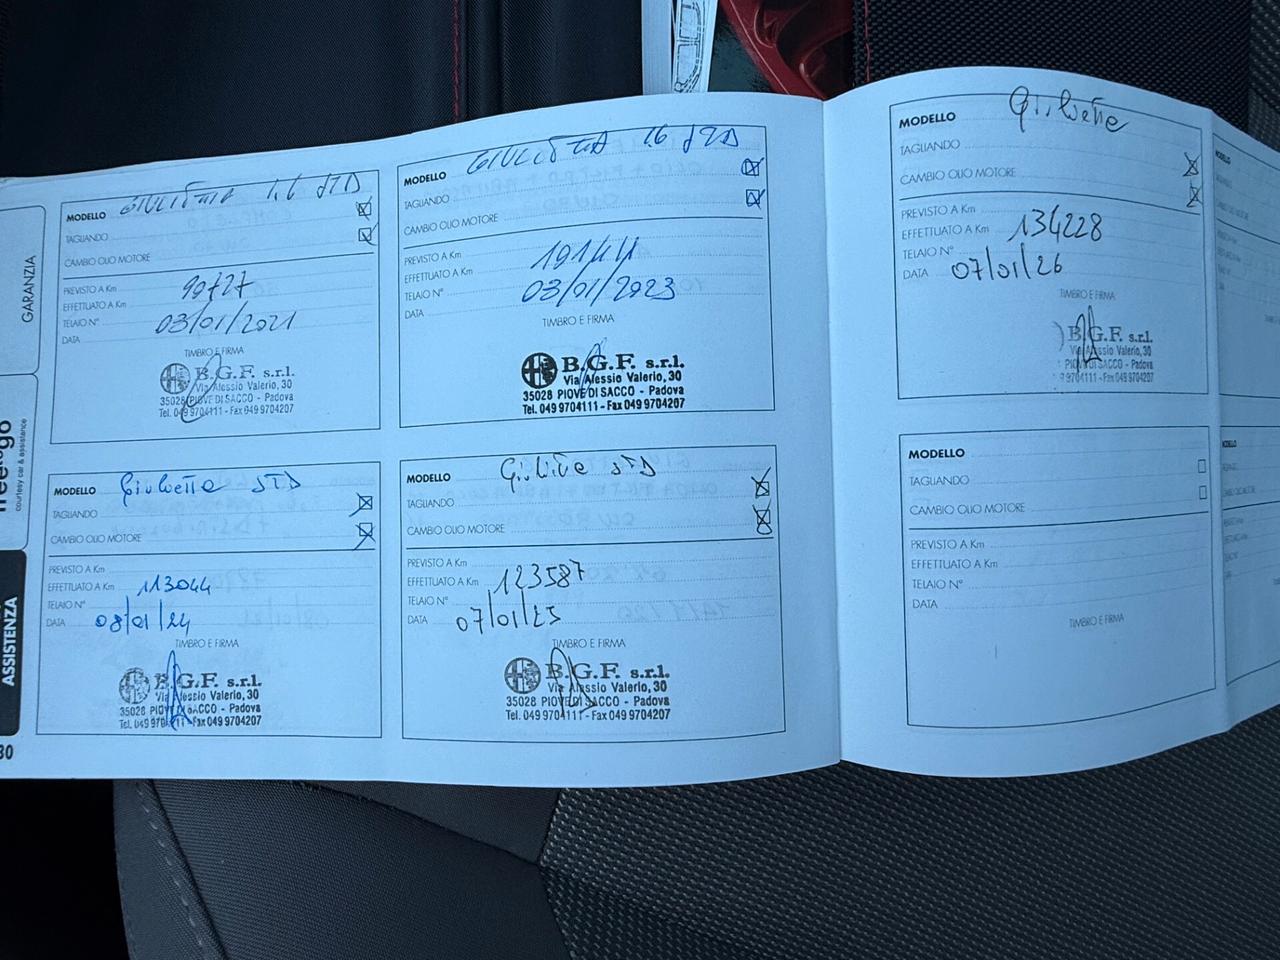 GARANZIA
courtesy car & assistance
ASSISTENZA
30
MODELLO GIULIETTA 1.6 JTD
TAGLIANDO
CAMBIO OLIO MOTORE
PREVISTO A Km
EFFETTUATO A Km 90727
TELAIO N°
DATA 03/01/2021
TIMBRO E FIRMA
B.G.F. s.r.l.
Via Alessio Valerio, 30
35028 PIOVE DI SACCO - Padova
Tel. 049 9704111 - Fax 049 9704207
MODELLO GIULIETTA 1.6 JTD
TAGLIANDO
CAMBIO OLIO MOTORE
PREVISTO A Km
EFFETTUATO A Km
TELAIO N°
DATA 03/01/2023
TIMBRO E FIRMA
B.G.F. s.r.l.
Via Alessio Valerio, 30
35028 PIOVE DI SACCO - Padova
Tel. 049 9704111 - Fax 049 9704207
MODELLO Giulietta JTD
TAGLIANDO
CAMBIO OLIO MOTORE
PREVISTO A Km
EFFETTUATO A Km 113044
TELAIO N°
DATA 08/01/24
TIMBRO E FIRMA
B.G.F. s.r.l.
Via Alessio Valerio, 30
35028 PIOVE DI SACCO - Padova
Tel. 049 9704111 - Fax 049 9704207
MODELLO Giulietta JTD
TAGLIANDO
CAMBIO OLIO MOTORE
PREVISTO A Km
EFFETTUATO A Km 123587
TELAIO N°
DATA 07/01/25
TIMBRO E FIRMA
B.G.F. s.r.l.
Via Alessio Valerio, 30
35028 PIOVE DI SACCO - Padova
Tel. 049 9704111 - Fax 049 9704207
MODELLO Giulietta
TAGLIANDO
CAMBIO OLIO MOTORE
PREVISTO A Km
EFFETTUATO A Km 134228
TELAIO N°
DATA 07/01/26
TIMBRO E FIRMA
B.G.F. s.r.l.
Via Alessio Valerio, 30
PIOVE DI SACCO - Padova
9704111 - Fax 049 9704207
MODELLO
TAGLIANDO
CAMBIO OLIO MOTORE
PREVISTO A Km
EFFETTUATO A Km
TELAIO N°
DATA
TIMBRO E FIRMA